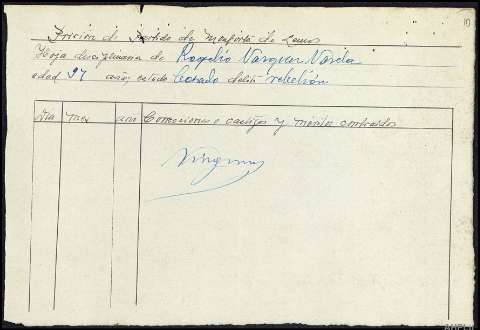 10
Pricion de Partido de Monforte de Lemos
Hoja diciplinaria de Rogelio Vazquez Varela
edad 37 años estado Casado delito rebelión
Dia mes año Correciones o castigos y meritos contraidos
Ninguno